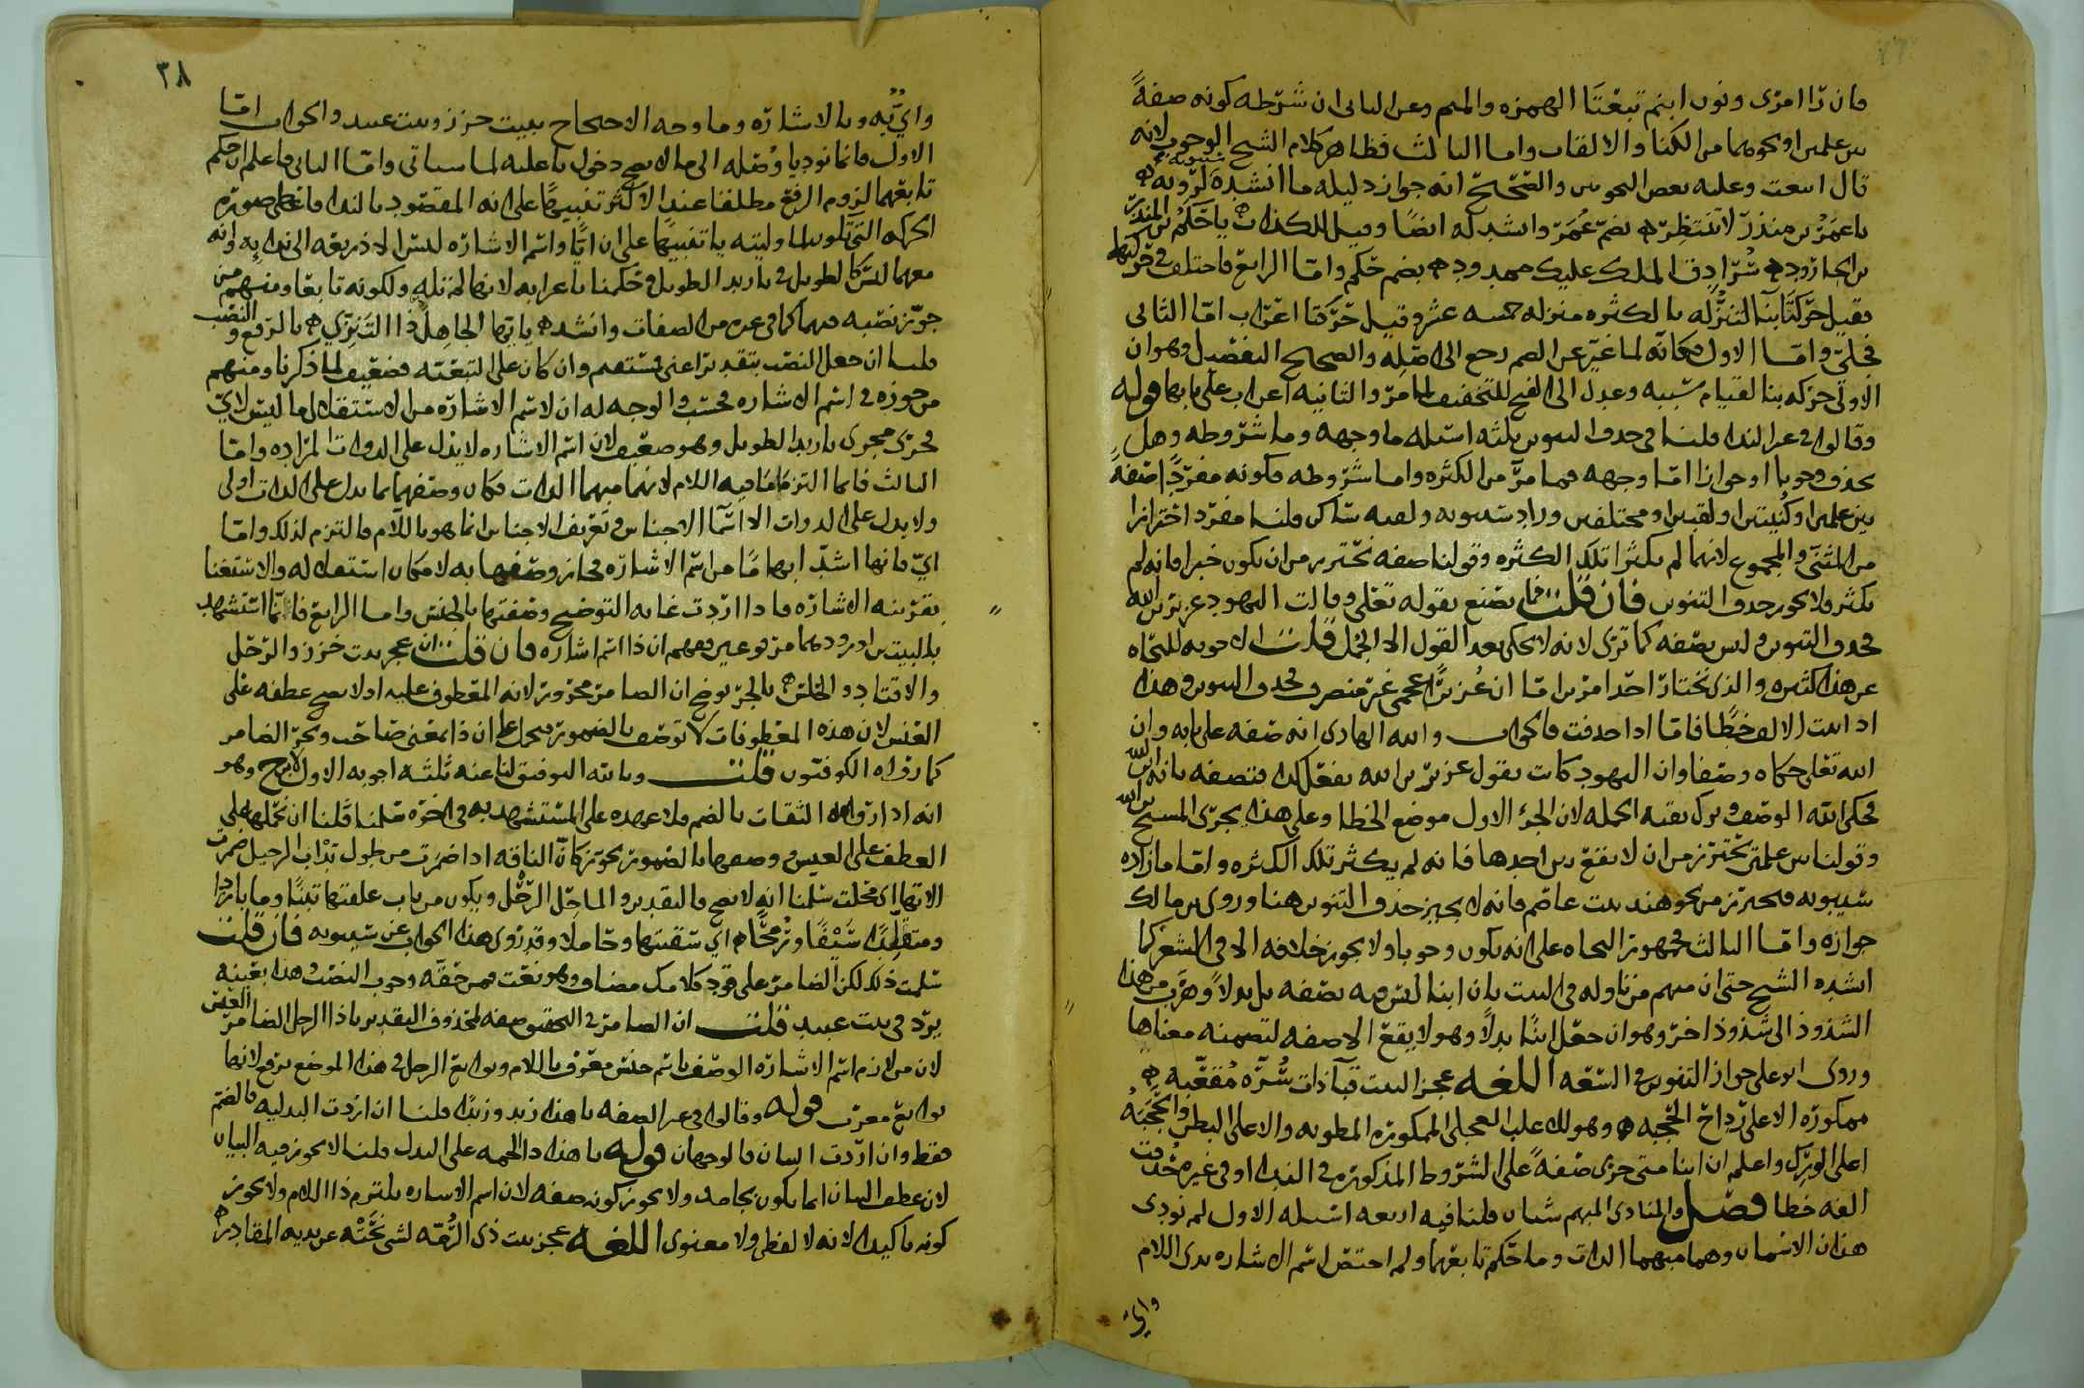 فان را امرئ ونون ابنم تبعتا الهمزه والميم وعن الثاني ان شرطه كونه صفةً
بين علمين او نحوهما من الكنا والالقاب واما الثالث فظاهر كلام الشيخ الوجوب لانه
قال اتبعت وعليه بعض النحويين والصحيح انه جواز دليله ما انشده سيبويه لرؤبه
يا عمر بن منذر لا تنتظر بضم عمر وانشد له ايضًا وقيل للكذاب يا حكم بن المنذر
بن الجارود سرادق الملك عليك ممدود بضم حكم واما الرابع فاختلف في حركتها
فقيل حركتا بنا لتنزله بالكثره منزله خمسه عشر وقيل حركتا اعراب امّا الثاني
فجلي وامّا الاول فكانه لما غير عن الضم رجع الى اصله والصحيح التفصيل وهو ان
الاولى حركه بنا لقيام سببه وعدل الى الفتح للتخفيف لما مرّ والثانيه اعراب على بابها قوله
وقالوا في غير الندا قلنا في حذف التنوين ثلثه اسئله ما وجهه وما شروطه وهل
يحذف وجوبا او جوازا امّا وجهه فما مرّ من الكثره واما شروطه فكونه مفردًا صفةً
بين علمين او كنيتين او لقبين او مختلفين وزاد سيبويه ولقيه ساكن قلنا مفرد احترازا
من المثنى والمجموع لانهما لم يكثرا تلك الكثره وقولنا صفه نحترز من ان يكون خبرا فانه لم
يكثر فلا يجوز حذف التنوين فان قلت فما يصنع بقوله تعلى وقالت اليهود عزير بن الله
فحذف التنوين وليس بصفه كما ترى لانه لا يحكى بعد القول الا الجمل قلت الاجوبه للنحاه
عن هذا كثيره والذي نختار احد امرين امّا ان عزيرًا عجمي غير منصرف فحذف التنوين وهذا
اذا اثبت الالف خطًّا فامّا اذا حذفت فالجواب والله الهادي انه صفه على بابه وان
الله تعلى حكاه وصفا وان اليهود كانت تقول عزير بن الله يفعل كذا فتصفه بانه ابن الله
فحكى الله الوصف وترك بقيه الجمله لان الجزء الاول موضع الخطا وعلى هذا يجري المسيح بن الله
وقولنا بين علمين نحترز من ان لا يقع بين احدها فانه لم يكثر تلك الكثره وامّا ما زاده
سيبويه فيحترز من نحو هند بنت عاصم فانه لا يجيز حذف التنوين هنا وروى بن مالك
جوازه وامّا الثالث فجمهور النحاه على انه يكون وجوبا ولا يجوز خلافه الا في الشعر كما
انشده الشيخ حتى ان منهم من تاوله في البيت بان ابنا ليس فيه بصفه بل بدلا وهرب من هذا
الشذوذ الى شذوذ اخر وهو ان جعل ابنًا بدلًا وهو لا يقع الا صفه لتضمنه معناها
وروى ابو علي جواز التنوين في السعه اللغه عجز البيت قبّآ ذات سُرّه مقعبه
ممكورة الاعلى رداح الحجبه وهو للاغلب العجلي الممكوره المطويه والاعلى البطن والحجبه
اعلى الورك واعلم ان ابنا متى جرى صفةً على الشروط المذكوره في الندا او في غيره حذفت
الفه خطا فصل والمنادى المبهم شيان قلنا فيه اربعه اسئله الاول لم نودي
هذان الاسمان وهما مبهما الذات وما حكم تابعهما ولم اختص اسم الاشاره بذي اللام
واي
٣٨
وايٌّ به وبالاشارة وما وجه الاحتجاج ببيت خزز وبيت عبيد والجواب امّا
الاول فانما نوديا وُصْله الى ما لا يصح دخول يا عليه لما سياتي وامّا الثاني فاعلم ان حكم
تابعهما لزوم الرفع مطلقا عند الاكثر تنبيهًا على انه المقصود بالندا فاعطي صورة
الحركه التي تكون لما وليته يا تنبيهًا على ان ايًّا واسم الاشاره ليس الا ذريعه الى ندايه وانه
معهما ليس كالطويل في يا زيد الطويل فحكمنا باعرابه لانها لم تله ولكونه تابعا ومنهم من
جوّز نصبه فيهما كما في غيره من الصفات وانشد يا ايها الجاهل ذا التنزي بالرفع والنصب
قلنا ان جعل النصب بتقدير اعني فمستقيم وان كان على التبعيه فضعيف لما ذكرنا ومنهم
من جوزه في اسم الاشاره فحسب والوجه له ان لاسم الاشارة من الاستقلال ما ليس لايّ
فجرى مجرى يا زيد الطويل وهو ضعيف لان اسم الاشاره لا يدل على الذوات المرادة وامّا
الثالث فانما التزما ما فيه اللام لانهما مبهما الذات فكان وصفهما بما يدل على الذات اولى
ولا يدل على الذوات الا اسما الاجناس وتعريف الاجناس انما هو باللام فالتزم لذلك وامّا
ايّ فانها اشدّ ابهامًا من اسم الاشاره فجاز وصفها به لامكان استقلاله والاستغنا
بقرينه الاشاره فاذا اردت غايه التوضيح وصفتها بالجنس واما الرابع فانّما استشهد
بالبيتين لورودهما مرفوعين ففهم ان ذا اسم اشاره فان قلت ان عجز بيت خزز والرحل
والاقتاد والحلس بالجر يوضح ان الضامر مجرور لانه المعطوف عليه اذ لا يصح عطفه على
العنس لان هذه المعطوفات لا توصف بالضمور فيحمل على ان ذا بمعنى صاحب ويجر الضامر
كما رواه الكوفيون قلت وبالله التوفيق لنا عنه ثلثه اجوبه الاول الارجح وهو
انه اذا رواه الثقات بالضم فلا عهده على المستشهد به في اخره قلنا قلنا ان نحملها على
العطف على العيس ووصفها بالضمور تجوز كانّ الناقه اذا ضمرت من طول تدآب الرحيل ضمرت
الاتها اي نحلت سلمنا انه لا يصح فالتقدير والماحل الرحل ويكون من باب علفتها تبنًا وما باردا
ومتقلدًا سيفًا ورمحًا اي سقيتها وحاملا وقد روي هذا الجواب عن سيبويه فان قلت
سلمت ذلك لكن الضامر على قود كلامك مضاف وهو نعت فمن حقه وجوب النصب وهذا بعينه
يرد في بيت عبيد قلت ان الضامر في التحقيق صفه لمحذوف التقدير يا ذا الرجل الضامر العنس
لان من لازم اسم الاشاره الوصف باسم جنس معرف باللام وتوابع الرجل في هذا الموضع ترفع لانها
توابع معرب قوله وقالوا في غير الصفه يا هذا زيد وزيدًا قلنا ان اردت البدليه فالضم
فقط وان اردت البيان فالوجهان قوله يا هذا ذا الجمه على البدل قلنا لا يجوز فيه البيان
لان عطف البيان انما يكون بجامد ولا يجوز كونه صفه لان اسم الاشاره يلتزم ذا اللام ولا يجوز
كونه تاكيدا لانه لا لفظي ولا معنوي اللغه عجز بيت ذي الرُّمّه لشي نحته عن يديه المقادر